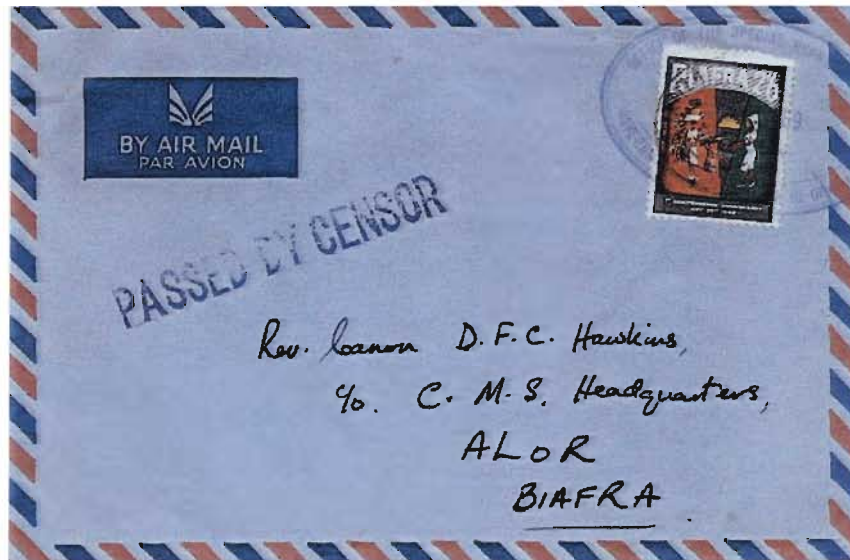 BY AIR MAIL
PAR AVION
PASSED BY CENSOR
Rev. Canon D.F.C. Hawkins,
c/o. C.M.S. Headquarters,
ALOR
BIAFRA